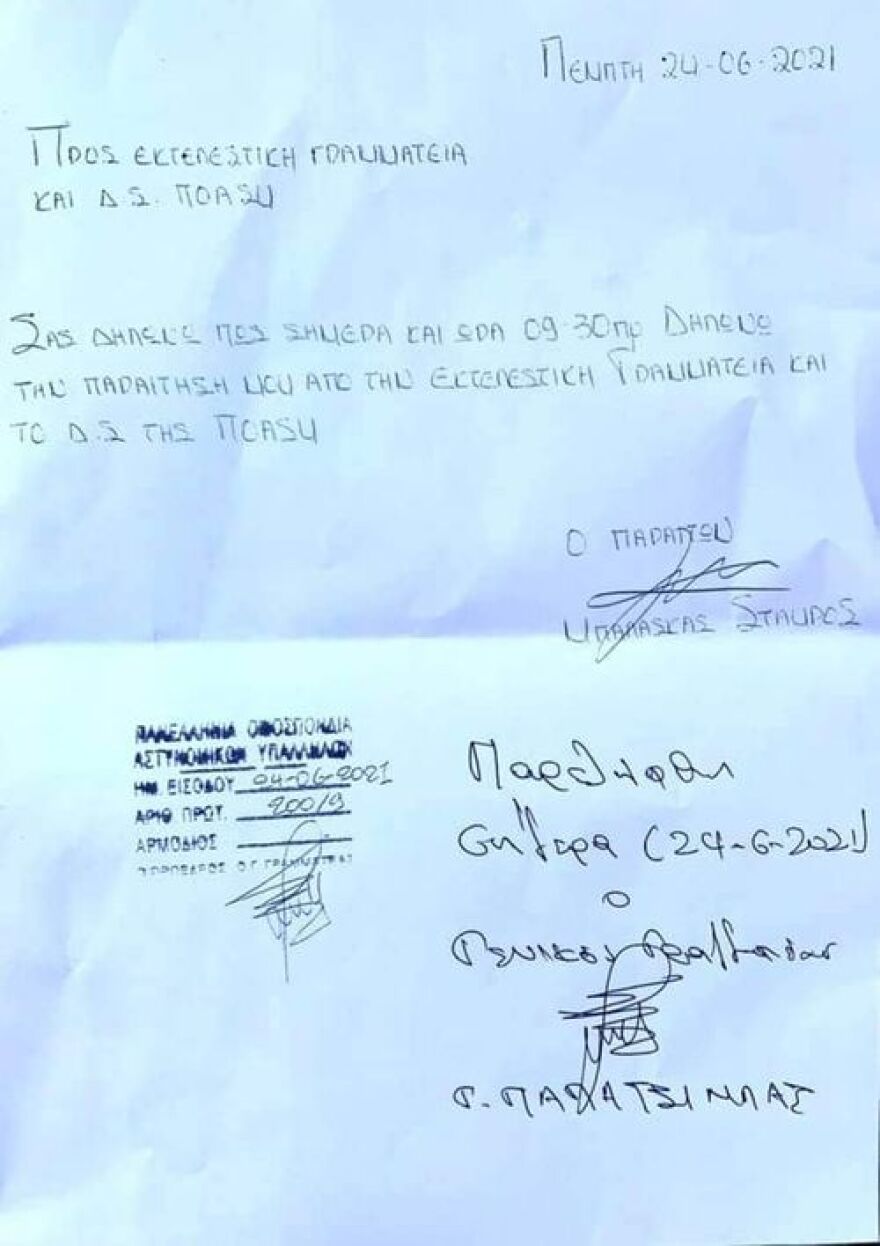 Πέμπτη 24-06-2021
Προς Εκτελεστική Γραμματεία
και Δ.Σ. ΠΟΑΣΥ
Σας δηλώνω πως σήμερα και ώρα 09:30πμ Δηλώνω
την παραίτηση μου από την Εκτελεστική Γραμματεία και
το Δ.Σ της ΠΟΑΣΥ
Ο ΠΑΡΑΙΤΩΝ
ΜΠΑΛΑΣΚΑΣ ΣΤΑΥΡΟΣ
ΠΑΝΕΛΛΗΝΙΑ ΟΜΟΣΠΟΝΔΙΑ
ΑΣΤΥΝΟΜΙΚΩΝ ΥΠΑΛΛΗΛΩΝ
ΗΜ ΕΙΣΟΔΟΥ 24-06-2021
ΑΡΙΘ ΠΡΩΤ. 200/9
ΑΡΜΟΔΙΟΣ
Ο ΠΡΟΕΔΡΟΣ Ο Γ. ΓΡΑΜΜΑΤΕΑΣ
Παρελήφθη
σήμερα (24-6-2021)
ο
Γενικός Γραμματέας
Γ. ΠΑΠΑΤΣΙΜΠΑΣ